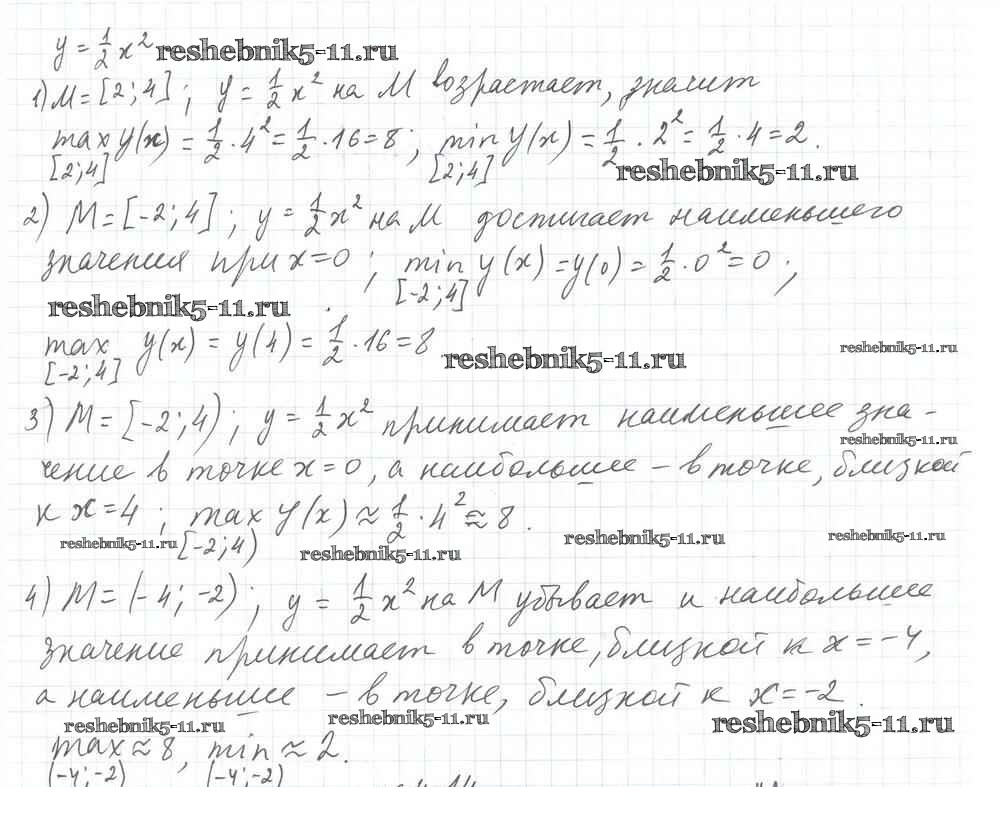 y = 1/2 x² reshebnik5-11.ru
1) M = [2; 4]; y = 1/2 x² на M возрастает, значит
max y(x) = 1/2 · 4² = 1/2 · 16 = 8; min y(x) = 1/2 · 2² = 1/2 · 4 = 2.
[2;4] [2;4] reshebnik5-11.ru
2) M = [-2; 4]; y = 1/2 x² на M достигает наименьшего
значения при x = 0; min y(x) = y(0) = 1/2 · 0² = 0;
[-2;4]
reshebnik5-11.ru
max y(x) = y(4) = 1/2 · 16 = 8
[-2;4] reshebnik5-11.ru reshebnik5-11.ru
3) M = [-2; 4); y = 1/2 x² принимает наименьшее зна-
reshebnik5-11.ru
чение в точке x = 0, а наибольшее – в точке, близкой
к x = 4; max y(x) ≈ 1/2 · 4² ≈ 8.
[-2; 4)
reshebnik5-11.ru reshebnik5-11.ru reshebnik5-11.ru reshebnik5-11.ru
4) M = (-4; -2); y = 1/2 x² на M убывает и наибольшее
значение принимает в точке, близкой к x = -4,
а наименьшее – в точке, близкой к x = -2.
reshebnik5-11.ru reshebnik5-11.ru reshebnik5-11.ru
max ≈ 8, min ≈ 2.
(-4; -2) (-4; -2)